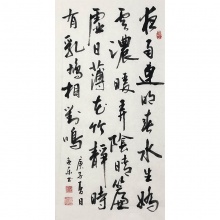 夜雨連明春水生嬌
雲濃暖弄陰晴簾
虛日薄花竹靜時
有乳鳩相對鳴
庚子夏日